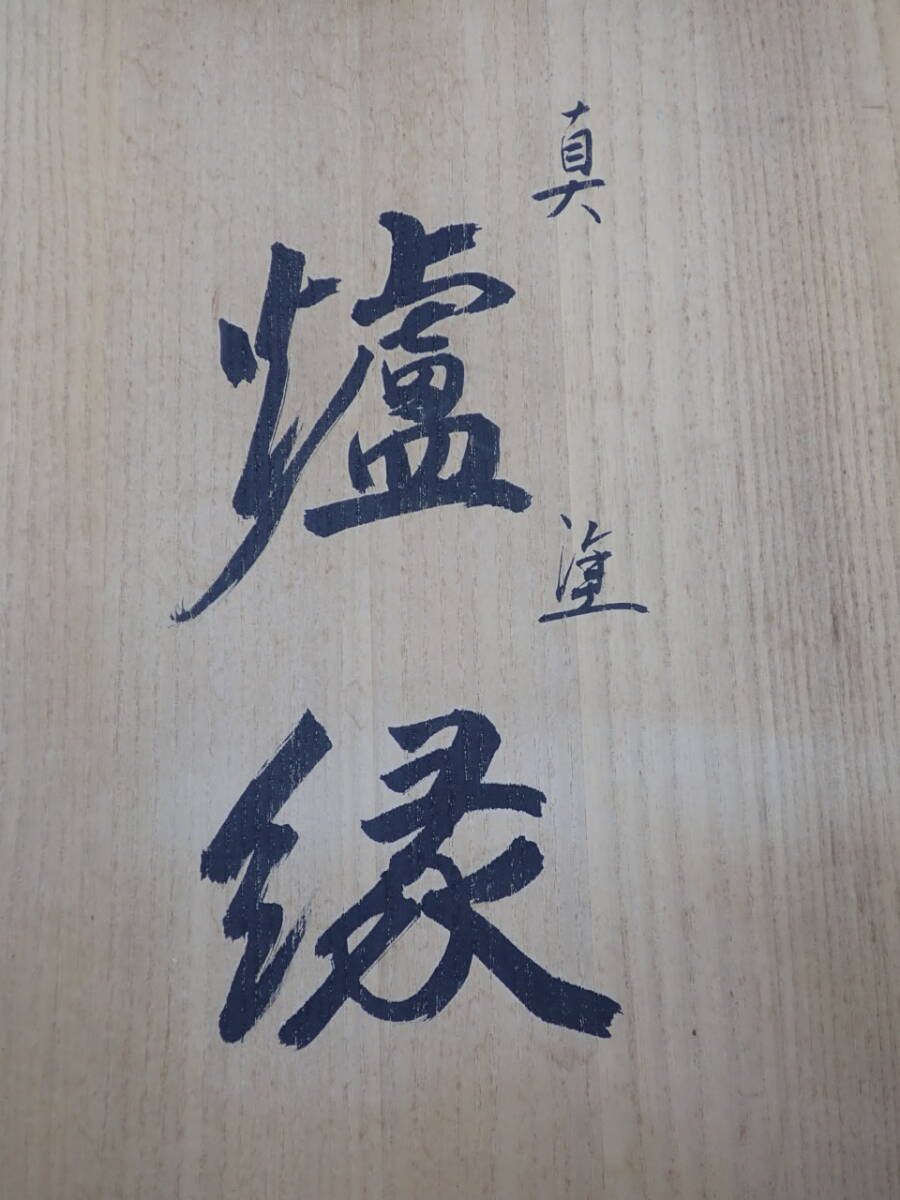 真塗
爐縁